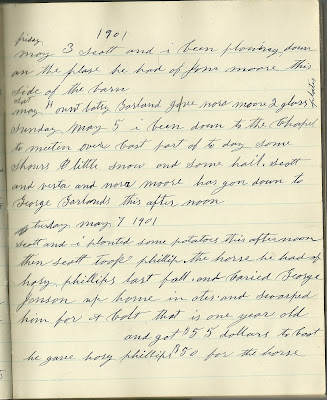 friday 1901
may 3 Scott and i been plowing down
on the plase he had of Jim moore this
side of the barn
sat
may 4 ount Caty Borland gave nora moore 2 glass plates
Sunday May 5 i been down to the Chapel
to meeten over Cost part of to day some
shours A little snow and some hail. Scott
and versa and nora moore has gon down to
George Borlands this after noon
tusday may 7 1901
Scott and i planted some potatoes this after noon
then Scott took phillip the horse he had of
hory phillips last fall. and baried George
Jonson up home in oles. and swaped
him for A Colt that is one year old
and got $55 dollars to boot
he gave hory phillips $50 for the horse